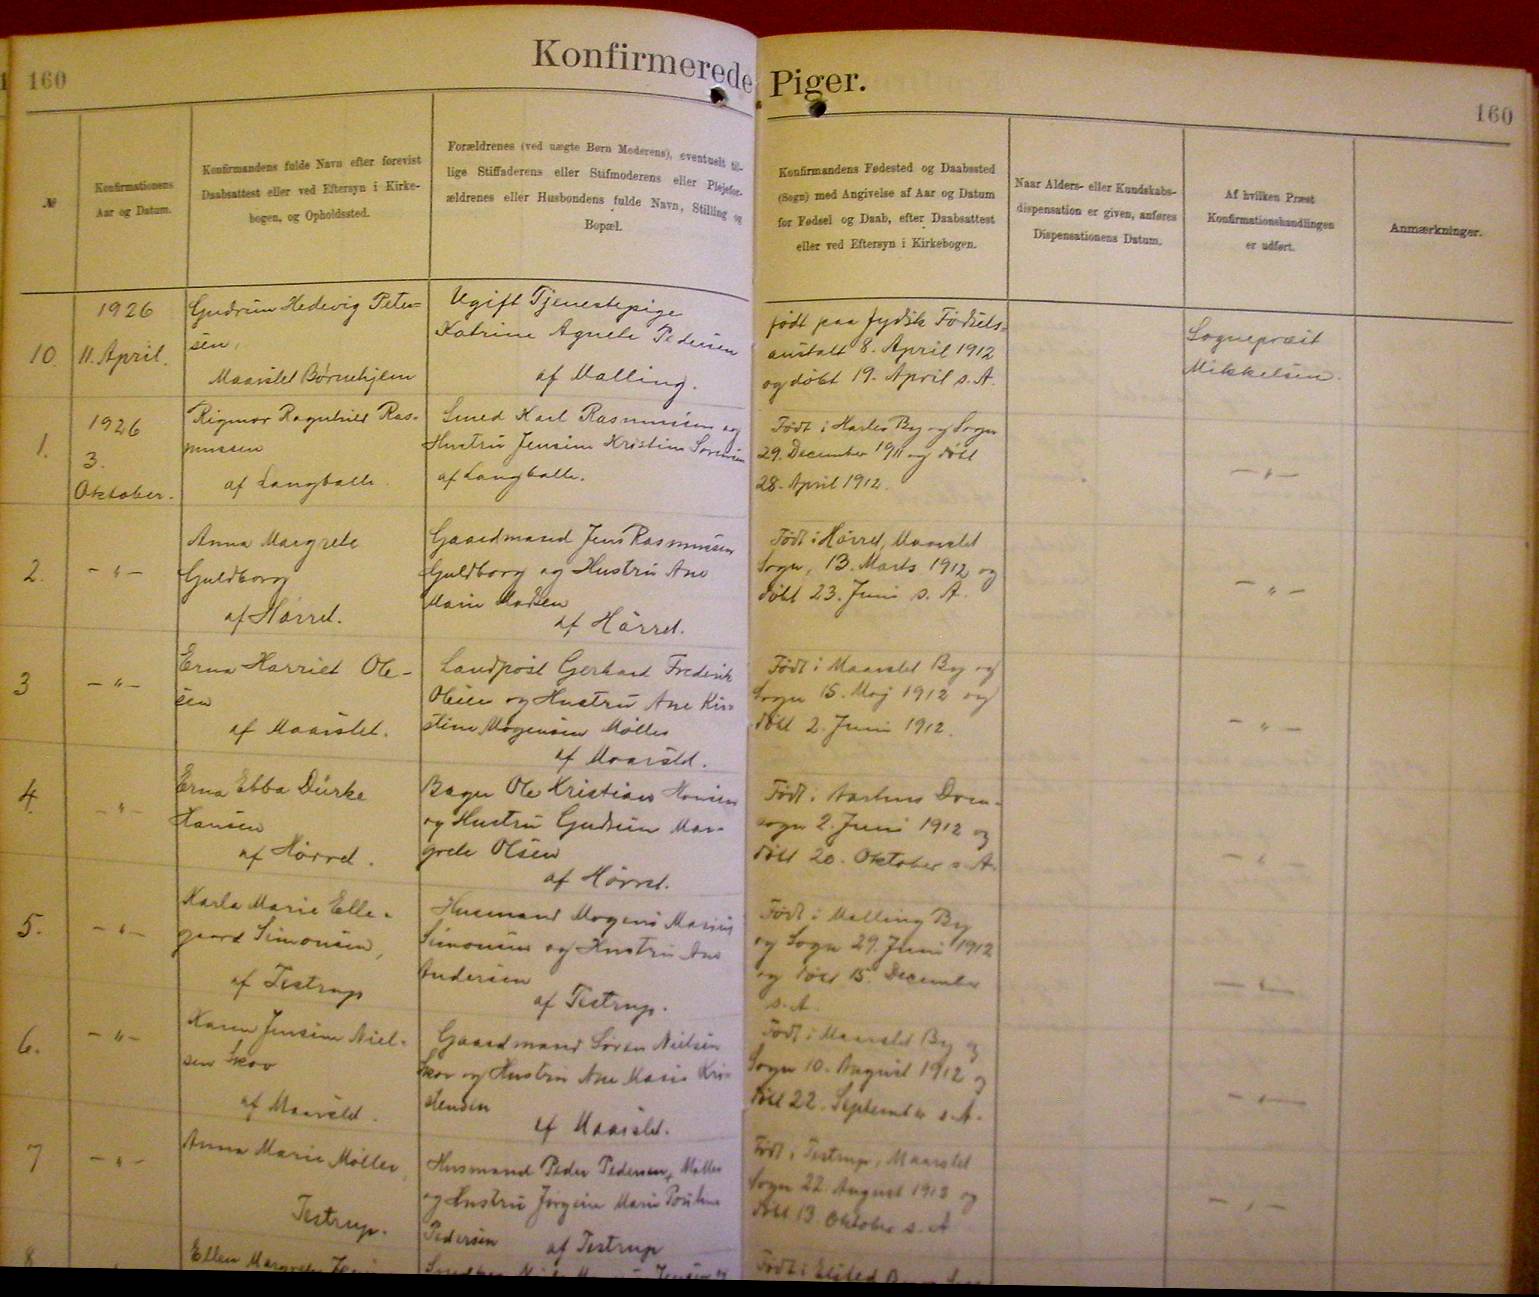 160
Konfirmerede Piger.
160
№
Konfirmationens
Aar og Datum.
Konfirmandens fulde Navn efter forevist
Daabsattest eller ved Eftersyn i Kirke-
bogen, og Opholdssted.
Forældrenes (ved uægte Børn Moderens), eventuelt til-
lige Stiffaderens eller Stifmoderens eller Plejefor-
ældrenes eller Husbondens fulde Navn, Stilling og
Bopæl.
Konfirmandens Fødested og Daabssted
(Sogn) med Angivelse af Aar og Datum
for Fødsel og Daab, efter Daabsattest
eller ved Eftersyn i Kirkebogen.
Naar Alders- eller Kundskabs-
dispensation er given, anføres
Dispensationens Datum.
Af hvilken Præst
Konfirmationshandlingen
er udført.
Anmærkninger.
10.
1926
11. April.
Gudrun Hedevig Peter=
sen,
Maarslet Børnehjem
Ugift Tjenestepige
Katrine Agnete Pedersen
af Malling.
født paa jydsk Fødsels-
anstalt 8. April 1912
og døbt 19. April s. A.
Sognepræst
Mikkelsen.
1.
1926
3.
Oktober.
Rigmor Ragnhild Ras-
mussen
af Langballe.
Smed Karl Rasmussen og
Hustru Jensine Kristine Sørensen
af Langballe.
Født i By og Sogn
29. December 1911 og døbt
28. April 1912.
— " —
2.
— " —
Anna Margrete
Guldborg
af Hørret.
Gaardmand Jens Rasmussen
Guldborg og Hustru Ane
Marie Madsen
af Hørret.
Født i Hørret, Maarslet
Sogn, 13. Marts 1912 og
døbt 23. Juni s. A.
— " —
3
— " —
Erna Harriet Ole-
sen
af Maarslet.
Landpost Gerhard Frederik
Olesen og Hustru Ane Kir-
stine Mogensen Møller
af Maarslet.
Født i Maarslet By og
Sogn 15. Maj 1912 og
døbt 2. Juni 1912.
— " —
4.
— " —
Erna Ebba Dürke
Hansen
af Hørret.
Bager Ole Kristian Hansen
og Hustru Gudrun Mar-
grete Olsen
af Hørret.
Født i Aarhus Dom-
sogn 2. Juni 1912 og
døbt 20. Oktober s. A.
— " —
5.
— " —
Karla Marie Elle-
gaard Simonsen,
af Testrup
Husmand Mogens Marius
Simonsen og Hustru Ane
Andersen
af Testrup.
Født i Malling By
og Sogn 29. Juni 1912
og døbt 15. December
s. A.
— " —
6.
— " —
Karen Jensine Niel-
sen Skov
af Maarslet.
Gaardmand Søren Nielsen
Skov og Hustru Ane Marie Kri-
stensen
af Maarslet.
Født i Maarslet By og
Sogn 10. August 1912 og
døbt 22. September s. A.
— " —
7
— " —
Anna Marie Møller,
Testrup.
Husmand Peder Pedersen Møller
og Hustru Jørgine Marie Pouline
Pedersen
af Testrup
Født i Testrup, Maarslet
Sogn 22. August 1912 og
døbt 13. Oktober s. A
— " —
8
Ellen Margrethe
Født i Elsted